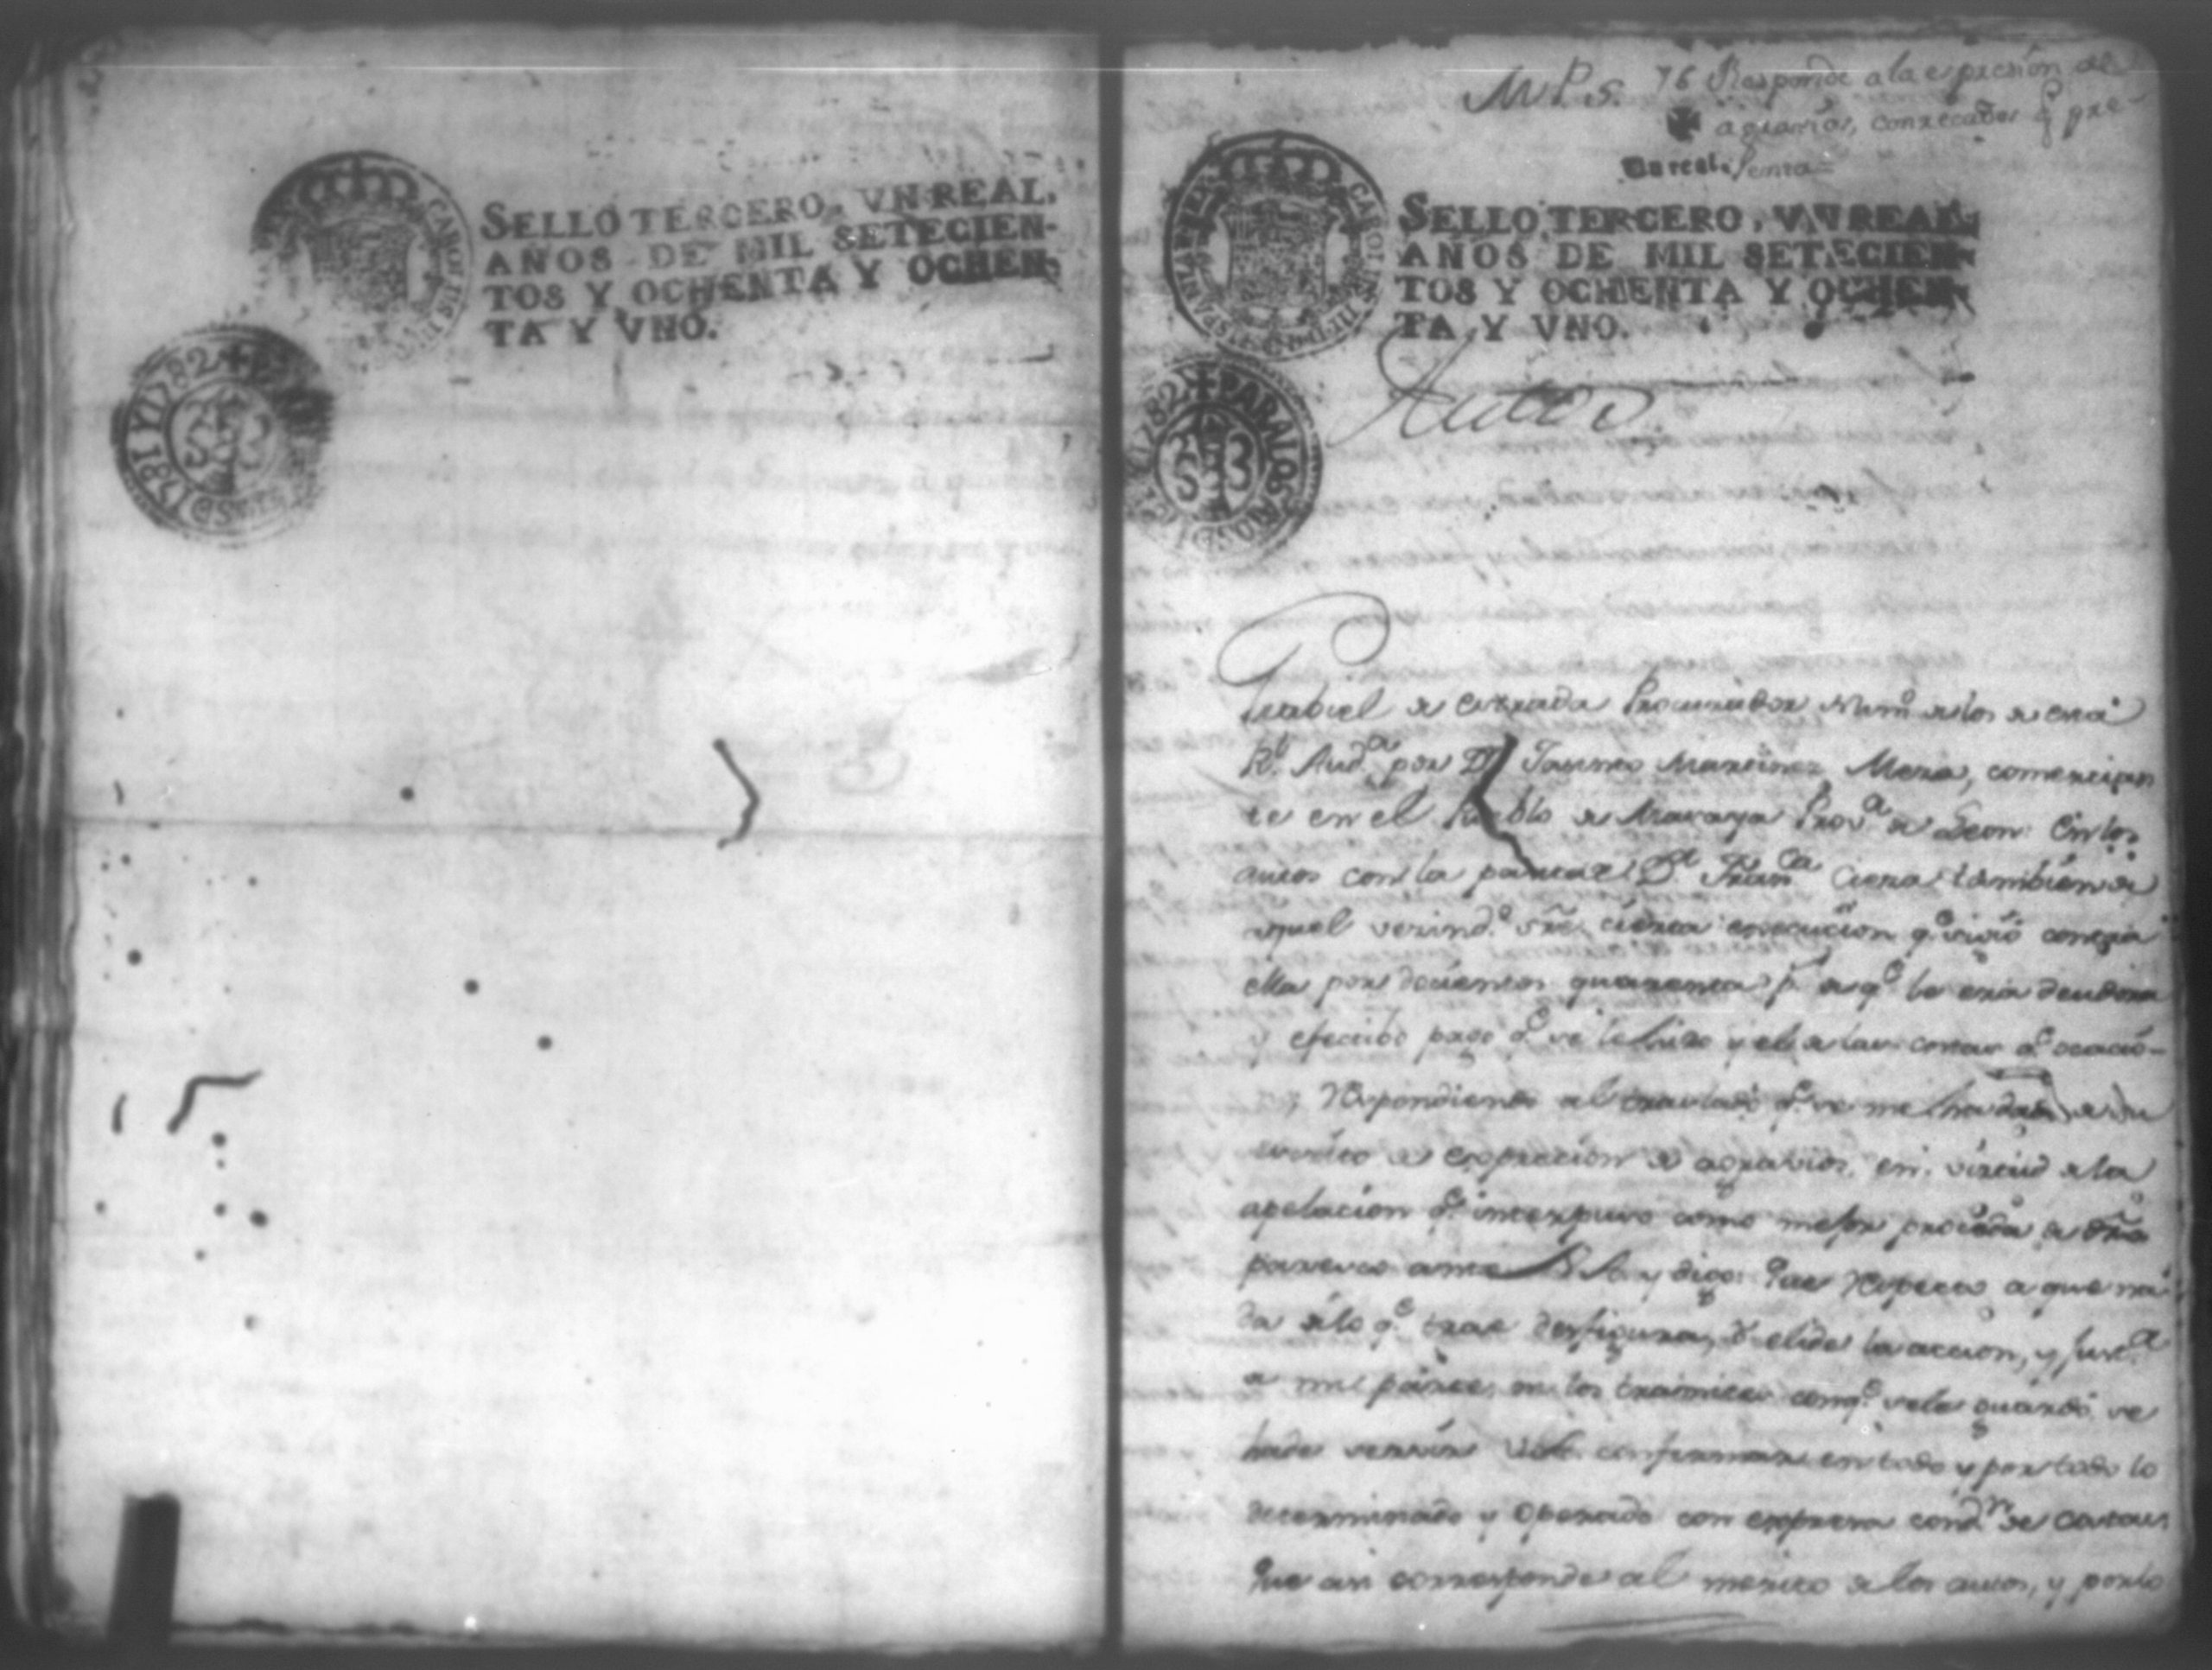 SELLO TERCERO, VN REAL,
AÑOS DE MIL SETECIEN-
TOS Y OCHENTA Y OCHEN-
TA Y VNO.
CAROLUS III
1781 Y 1782 +
M. P. S.
76 Responde a la espresión de
agravios, con recados q̃ pre-
senta
Un real.
SELLO TERCERO, VN REAL,
AÑOS DE MIL SETECIEN-
TOS Y OCHENTA Y OCHEN-
TA Y VNO.
CAROLUS III
1782 + PARA LOS AÑOS D
Autos
Gabiel de estrada Procurador Num.o de los de esta
R.l Aud.a por D.n Martinez Mesa, comercian
te en el Pueblo de Prov.a de Leon: En los
autos con la parte de D.a Fran.ca tambien de
aquel vecind.o sre. cierta execucion q.e siguió contra
ella por docientos quarenta p.s de q.e le era deudora
y efectibo pago q.e se le hizo y el de las costas q.e ocacio-
nó; Respondiendo al traslado q.e se me ha dado de su
escrito de expresion de agravios, en virtud de la
apelacion q.e interpuso como mejor proceda de dro.
paresco ante V. A. y digo: Que respecto a que na-
da de lo q.e trae desfigura, ò elide la accion, y just.a
de mi parte, en los terminos conq.e vela quando se
hade servir V. A. confirmar en todo y por todo lo
determinado y Operado con expresa cond.n de costas.
Que asi corresponde al merito de los autos, y por lo